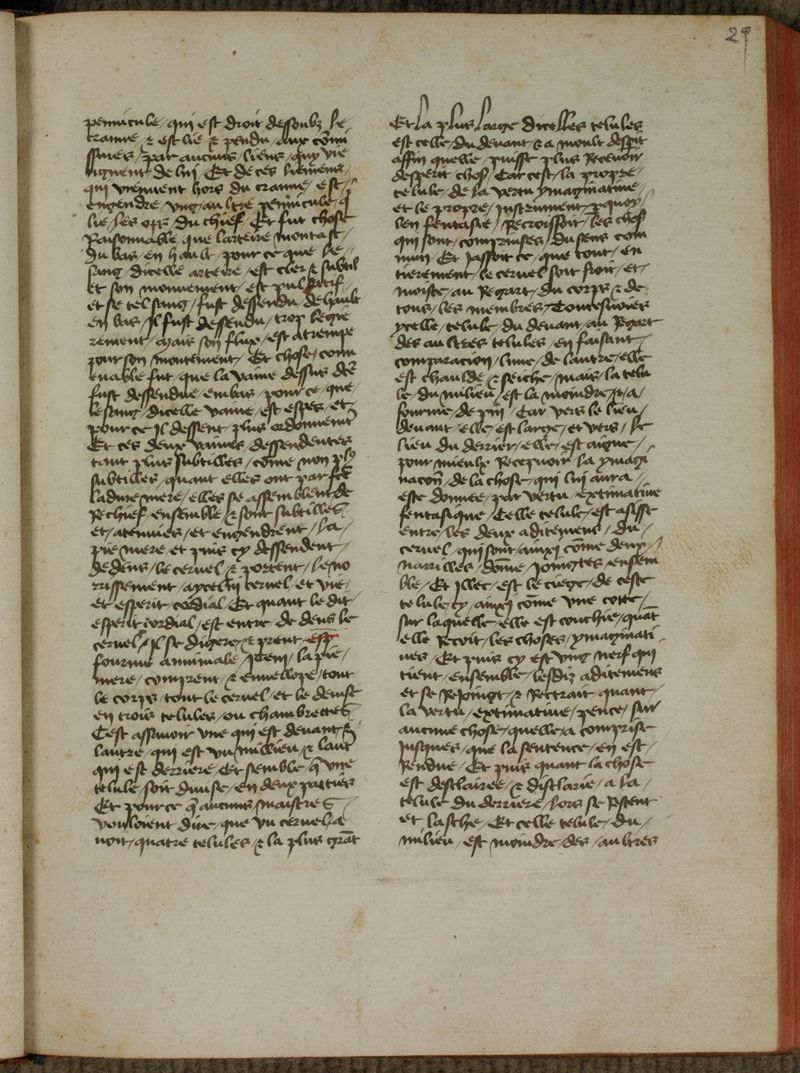 29
pennicule / qui est droit dessoubz le
cranne / & est lie & pendu / aux cōmi
ssures / par aucuns / liens / quy vie
ngnent de lui / Et de ces liemens /
qui viennent hors du cranne / est /
engendre / vng aultre pennicule / q̄
lie / les ops / du chief / Et fut chose
Raisonnable / que lartere montast /
du bas / en hault / pour ce que le /
sang / dicelle artere / est cler & subtil
et son mouuement / est pulsatif /
et se tel sang / fust dessendu / de hault
en bas / Il fust dessendu / trop legie
rement / mais son flux / est atrempe
pour son montement / Et chose / conu
enable fut / que la vaine dessus dēe
fust dessendue / embas / pour ce / que /
le sang / dicelle vaine / est espes / et /
pour ce il dessent / plus ordonnemēt
Et ces deux vaines / dessendentes
tant plus subtilles / cōme non pl9
subtilles / quant elles ont parfce
la dure mere / elles se assemblent de
Rechief / ensemble / & sont subtilles
et / atenuies / et engendrent / la /
pie mere / et puis cy dessendent /
dedens / le ceruel / & portent / le no
rrissement / aycelui ceruel / et vie /
et esperit / cordial / Et quant le dit
esperit cordial / est entre / de dens le
ceruel / il se digere / & prent esp
fourme / annimale / Item / la pie /
mere / comprent / & enuellope / tout
le corps / tout le ceruel / et le deuise
en trois celules / ou chambrettes
Cest assauoir vne qui est deuant &
lautre / qui est vn millieu / & laut
qui est derriere / Et semble / q̄ vne
celule / soit diuise / en deux parties
Et pour ce q̄ aucuns maistres
vouloient dire / que vn ceruel / a
uoit / quatre celules / & la plus grāt
Et la plus large dicelles celules
est celle / du deuant / & a moult desperit
affin quelle / puisse plus Receuoir
desperit chos / Car cest / la propre /
celule / de la vertu ymaginatiue /
et le propre / Instrument / p quoy /
len fantasie / Recroissoit / les chos
qui sont / comprinses / du sens com
mun / Et jassoit ce / que tout / en
tierement / le ceruel soit froit / et /
moiste / au Regart / du corps / & de
tous / les membres / Toutesuoies
ycelle / celule / du deuant / au Regart
des aultres celules / en faisant /
comparacion / lune / de lautre / elle
est chaulde / & seiche / mais / la celu
le du milieu / est la moindre / & a /
fourme / de pin / Car vers le lieu /
deuant / elle / est large / et vers / le
lieu / du derrier / elle / est aigue /
pour mieulx Recepuoir / la ymagi
nacōn / de la chose / qui lui aura /
este donnee / par vertu / extimatiue
fentasique / Celle celule / est assise
entre / les deux aditemens / du /
ceruel / qui sont / ainxi cōme deux /
narrilles / dome / Jointes / ensem
ble / Et illec / est le siege / de ceste
celule / cy / ainxi cōme vne coite /
sur laquelle / elle est couchie / quāt
elle Recoit / les choses / ymaginati
ues / Et puis cy est vng nerf qui
tient / ensemble / lesdiz aditemens
et se Reioingt / & Rettrait quant /
la vertu / extimatiue / pence / sur
aucune chose / quelle / a comprise
Jusques / que la sentence / en est /
Rendue / Et puis quant la chose
est desclairee / & distlarie / a la /
celule du derriere / lors se Restent
et lasche / Et celle celule / du /
milieu / est moindre / des / aultres